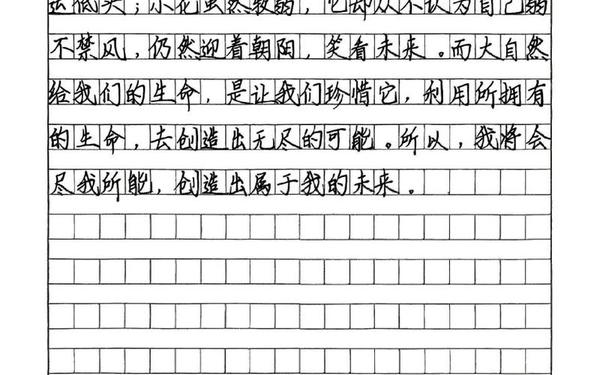 低头；小花虽然较弱，它却从不认为自己弱
不禁风，仍然迎着朝阳，笑看未来。而大自然
给我们的生命，是让我们珍惜它，利用所拥有
的生命，去创造出无尽的可能。所以，我将会
尽我所能，创造出属于我的未来。